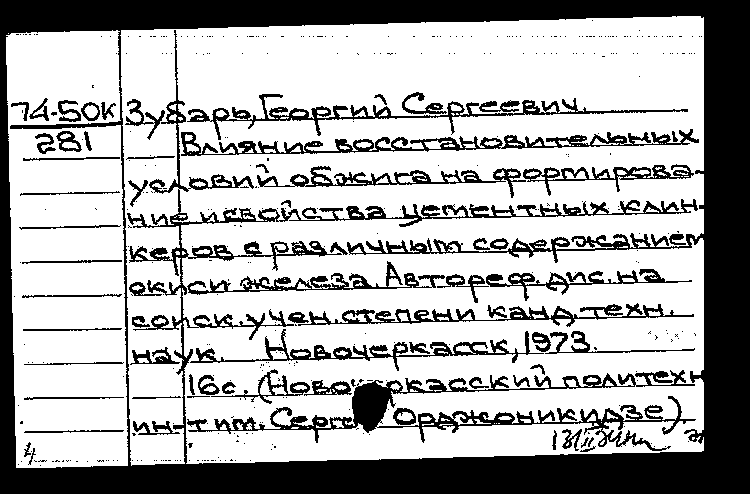 74-50к Зубарь, Георгий Сергеевич.
281 Влияние восстановительных
условий обжига на формирова-
ние и свойства цементных клин-
керов с различным содержанием
окиси железа. Автореф. дис. на
соиск. учен. степени канд. техн.
наук. Новочеркасск, 1973.
16с. (Новочеркасский политехн
ин-т им. Серго Орджоникидзе).
4